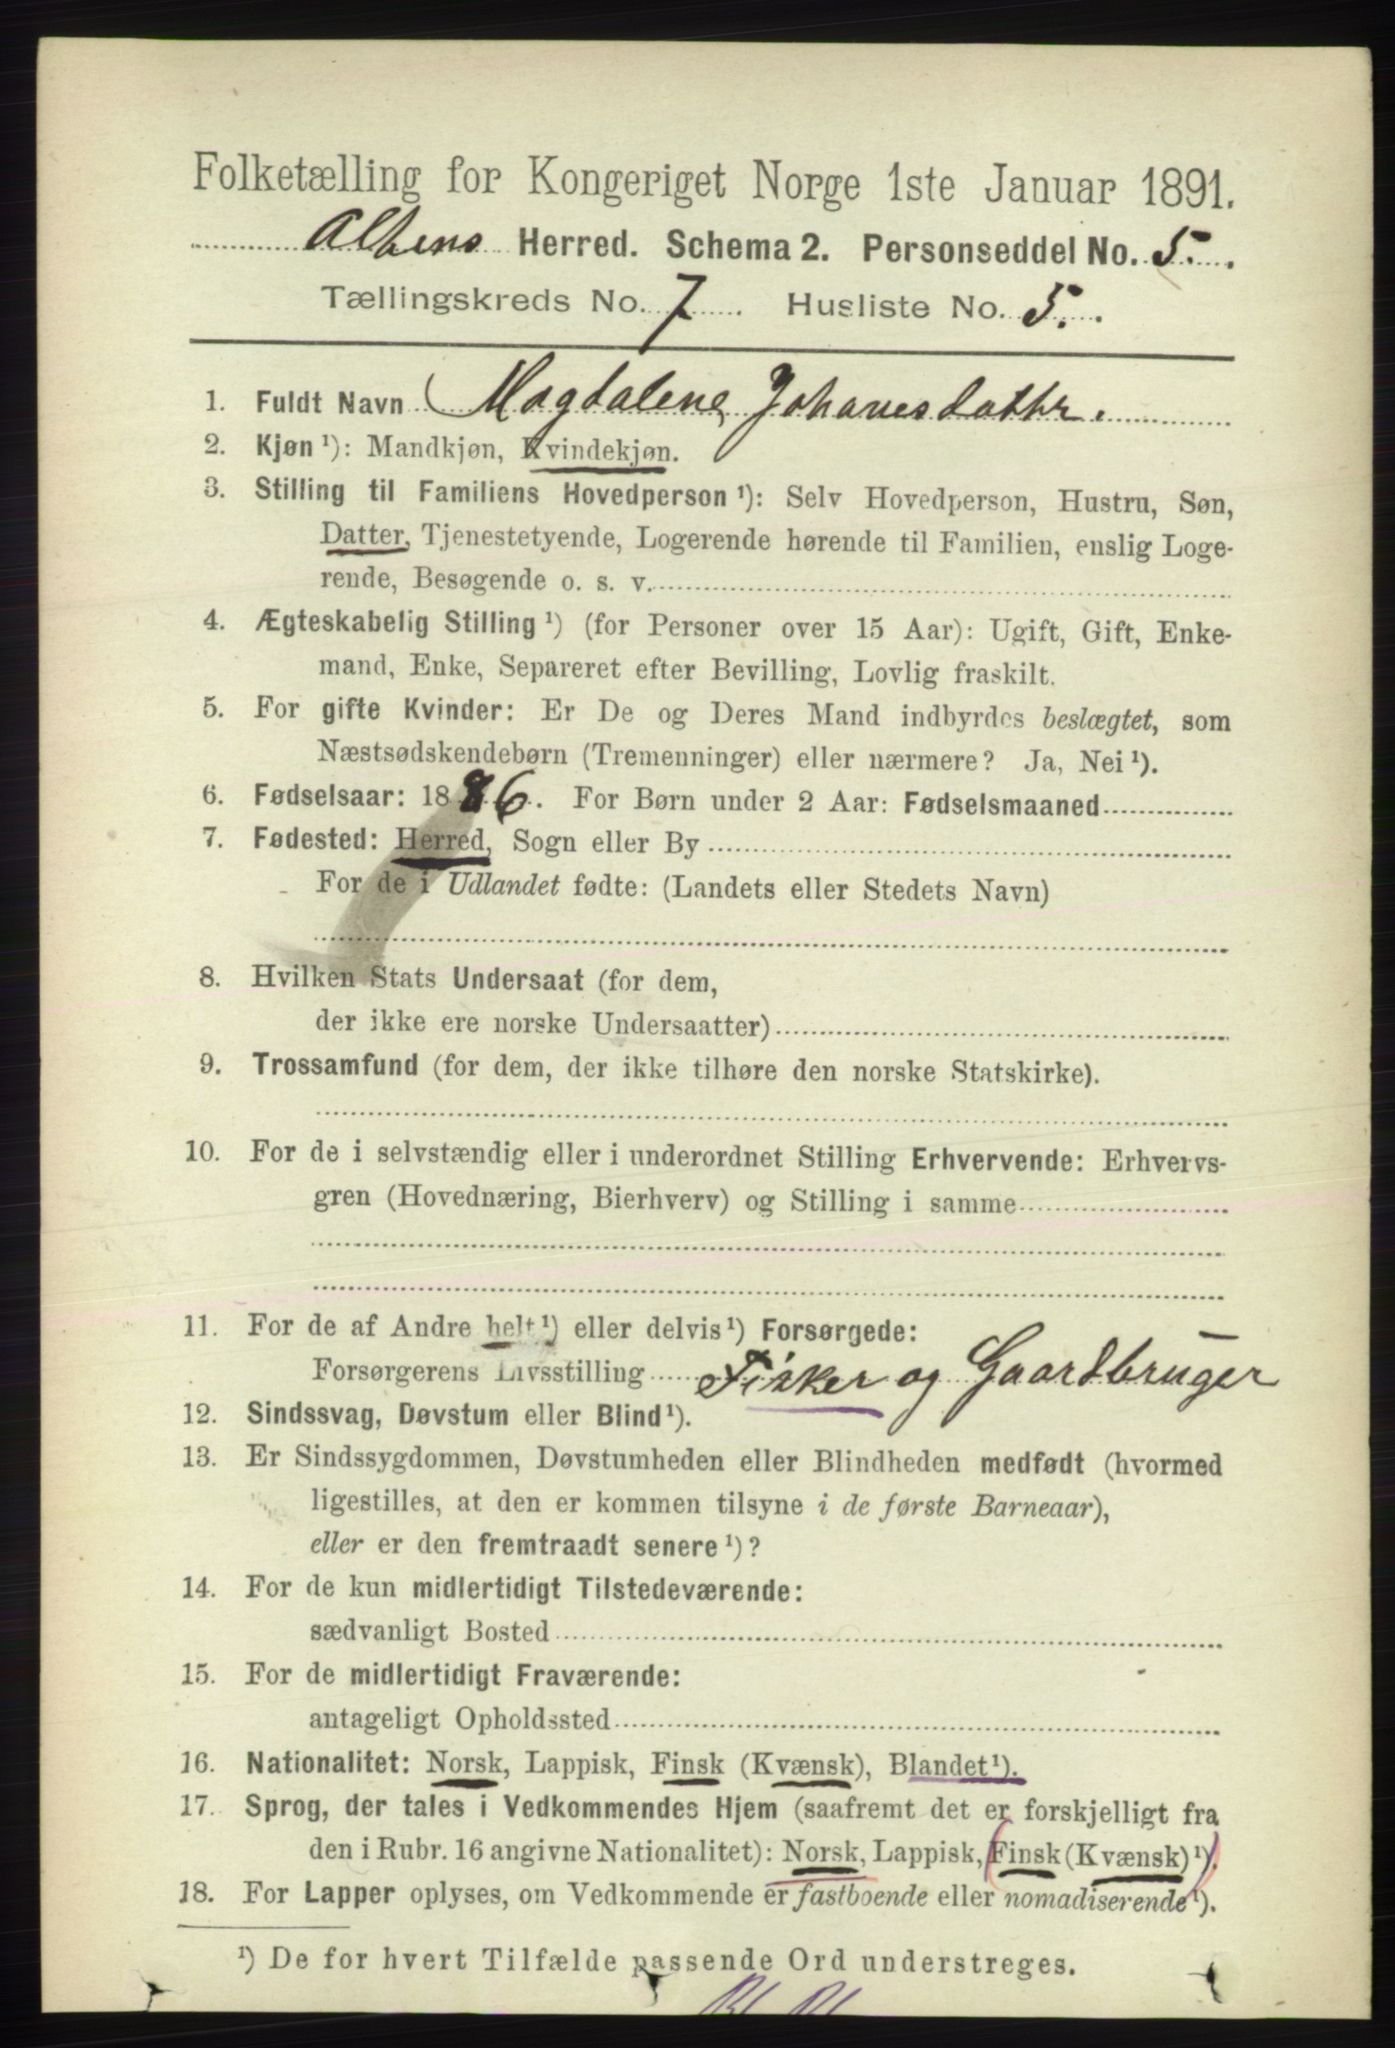 Folketælling for Kongeriget Norge 1ste Januar 1891.
Altens Herred. Schema 2. Personseddel No. 5.
Tællingskreds No. 7. Husliste No. 5.
1. Fuldt Navn Magdalene Johanesdatter.
2. Kjøn ¹): Mandkjøn, Kvindekjøn.
3. Stilling til Familiens Hovedperson ¹): Selv Hovedperson, Hustru, Søn,
Datter, Tjenestetyende, Logerende hørende til Familien, enslig Loge-
rende, Besøgende o. s. v.
4. Ægteskabelig Stilling ¹) (for Personer over 15 Aar): Ugift, Gift, Enke-
mand, Enke, Separeret efter Bevilling, Lovlig fraskilt.
5. For gifte Kvinder: Er De og Deres Mand indbyrdes beslægtet, som
Næstsødskendebørn (Tremenninger) eller nærmere? Ja, Nei ¹).
6. Fødselsaar: 1886. For Børn under 2 Aar: Fødselsmaaned
7. Fødested: Herred, Sogn eller By
For de i Udlandet fødte: (Landets eller Stedets Navn)
8. Hvilken Stats Undersaat (for dem,
der ikke ere norske Undersaatter)
9. Trossamfund (for dem, der ikke tilhøre den norske Statskirke).
10. For de i selvstændig eller i underordnet Stilling Erhvervende: Erhvervs-
gren (Hovednæring, Bierhverv) og Stilling i samme
11. For de af Andre helt ¹) eller delvis ¹) Forsørgede:
Forsørgerens Livsstilling Fisker og Gaardbruger
12. Sindssvag, Døvstum eller Blind ¹).
13. Er Sindssygdommen, Døvstumheden eller Blindheden medfødt (hvormed
ligestilles, at den er kommen tilsyne i de første Barneaar),
eller er den fremtraadt senere ¹)?
14. For de kun midlertidigt Tilstedeværende:
sædvanligt Bosted
15. For de midlertidigt Fraværende:
antageligt Opholdssted
16. Nationalitet: Norsk, Lappisk, Finsk (Kvænsk), Blandet ¹).
17. Sprog, der tales i Vedkommendes Hjem (saafremt det er forskjelligt fra
den i Rubr. 16 angivne Nationalitet): Norsk, Lappisk, Finsk (Kvænsk) ¹).
18. For Lapper oplyses, om Vedkommende er fastboende eller nomadiserende ¹).
¹) De for hvert Tilfælde passende Ord understreges.